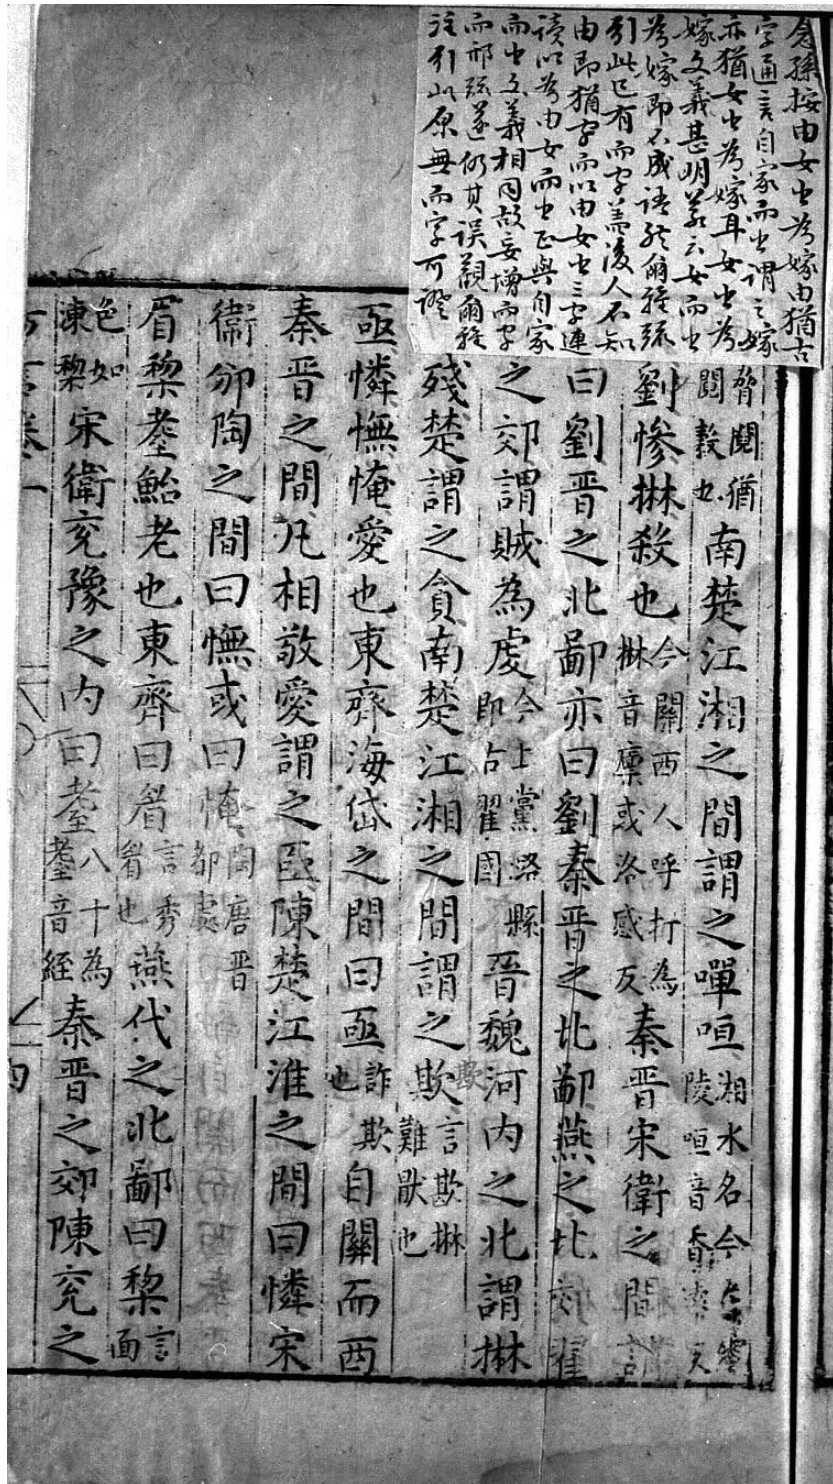 念孫按由女出為嫁由猶古
字通言自家而出謂之嫁
亦猶女出為嫁耳女出為
嫁文義甚明若云女而出
為嫁即不成語矣爾雅疏
引此已有而字蓋後人不知
由即猶字而以由女出三字連
讀以為由女而出正與自家
而出文義相同故妄增而字
而邢疏遂仍其誤觀爾雅
注引此原無而字可證
脅鬩猶
鬩穀也
南楚江湘之間謂之嘽咺
湘水名今在零
陵咺音香遠反
劉慘惏殺也
今關西人呼打為
惏音廩或洛感反
秦晉宋衛之間謂
曰劉晉之北鄙亦曰劉秦晉之北鄙燕之北郊翟
之郊謂賊為虔
今上黨潞縣
即古翟國
晉魏河內之北謂惏
殘楚謂之貪南楚江湘之間謂之欺
欿
言欺惏
難猒也
亟憐憮㤿愛也東齊海岱之間曰亟
詐欺
也
自關而西
秦晉之間凡相敬愛謂之亟陳楚江淮之間曰憐宋
衛邠陶之間曰憮或曰㤿
陶唐晉
都處
眉棃耊鮐老也東齊曰眉
言秀
眉也
燕代之北鄙曰棃
言
面
色如
凍棃
宋衛兗豫之內曰耊
八十為
耊音絰
秦晉之郊陳兗之
方言卷一